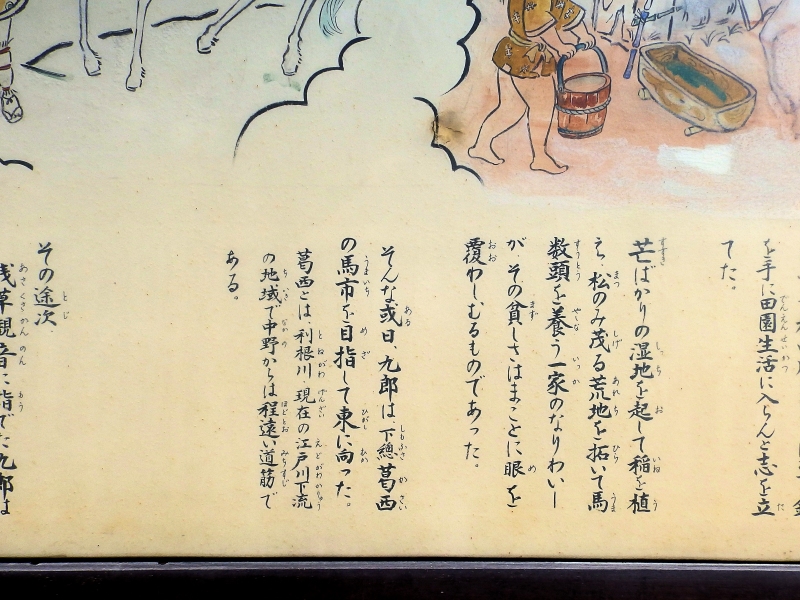 を手に田園生活に入らんと志を立
てた。
芒ばかりの湿地を起して稲を植
え、松のみ茂る荒地を拓いて馬
数頭を養う一家のなりわい—
が、その貧しさはまことに眼を
覆わしむるものであった。
そんな或日、九郎は、下總葛西
の馬市を目指して東に向った。
葛西とは、利根川、現在の江戸川下流
の地域で中野からは程遠い道筋で
ある。
その途次、
浅草観音に詣でた九郎は